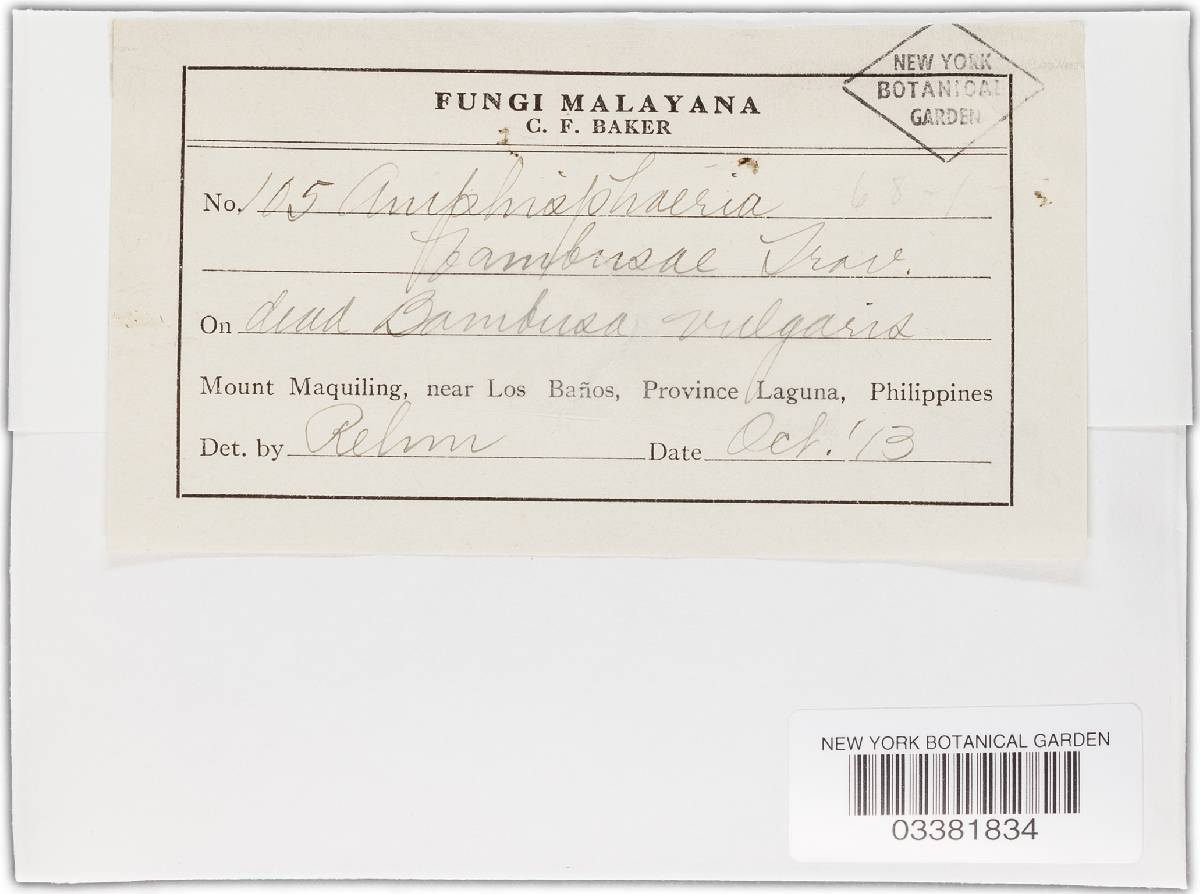 FUNGI MALAYANA
C. F. BAKER
NEW YORK
BOTANICAL
GARDEN
No. 105 Amphisphaeria
bambusae Trav.
On dead Bambusa vulgaris
Mount Maquiling, near Los Baños, Province Laguna, Philippines
Det. by Rehm Date Oct. '13
NEW YORK BOTANICAL GARDEN
03381834